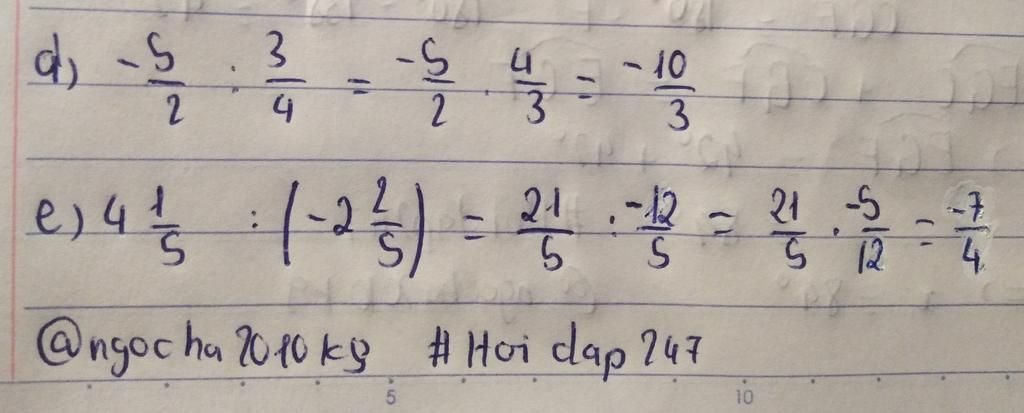 d) -5/2 : 3/4 = -5/2 . 4/3 = -10/3
e) 4 1/5 : (-2 2/5) = 21/5 : -12/5 = 21/5 . -5/12 = -7/4
@ngocha2010kg #Hoi dap 247
5 10